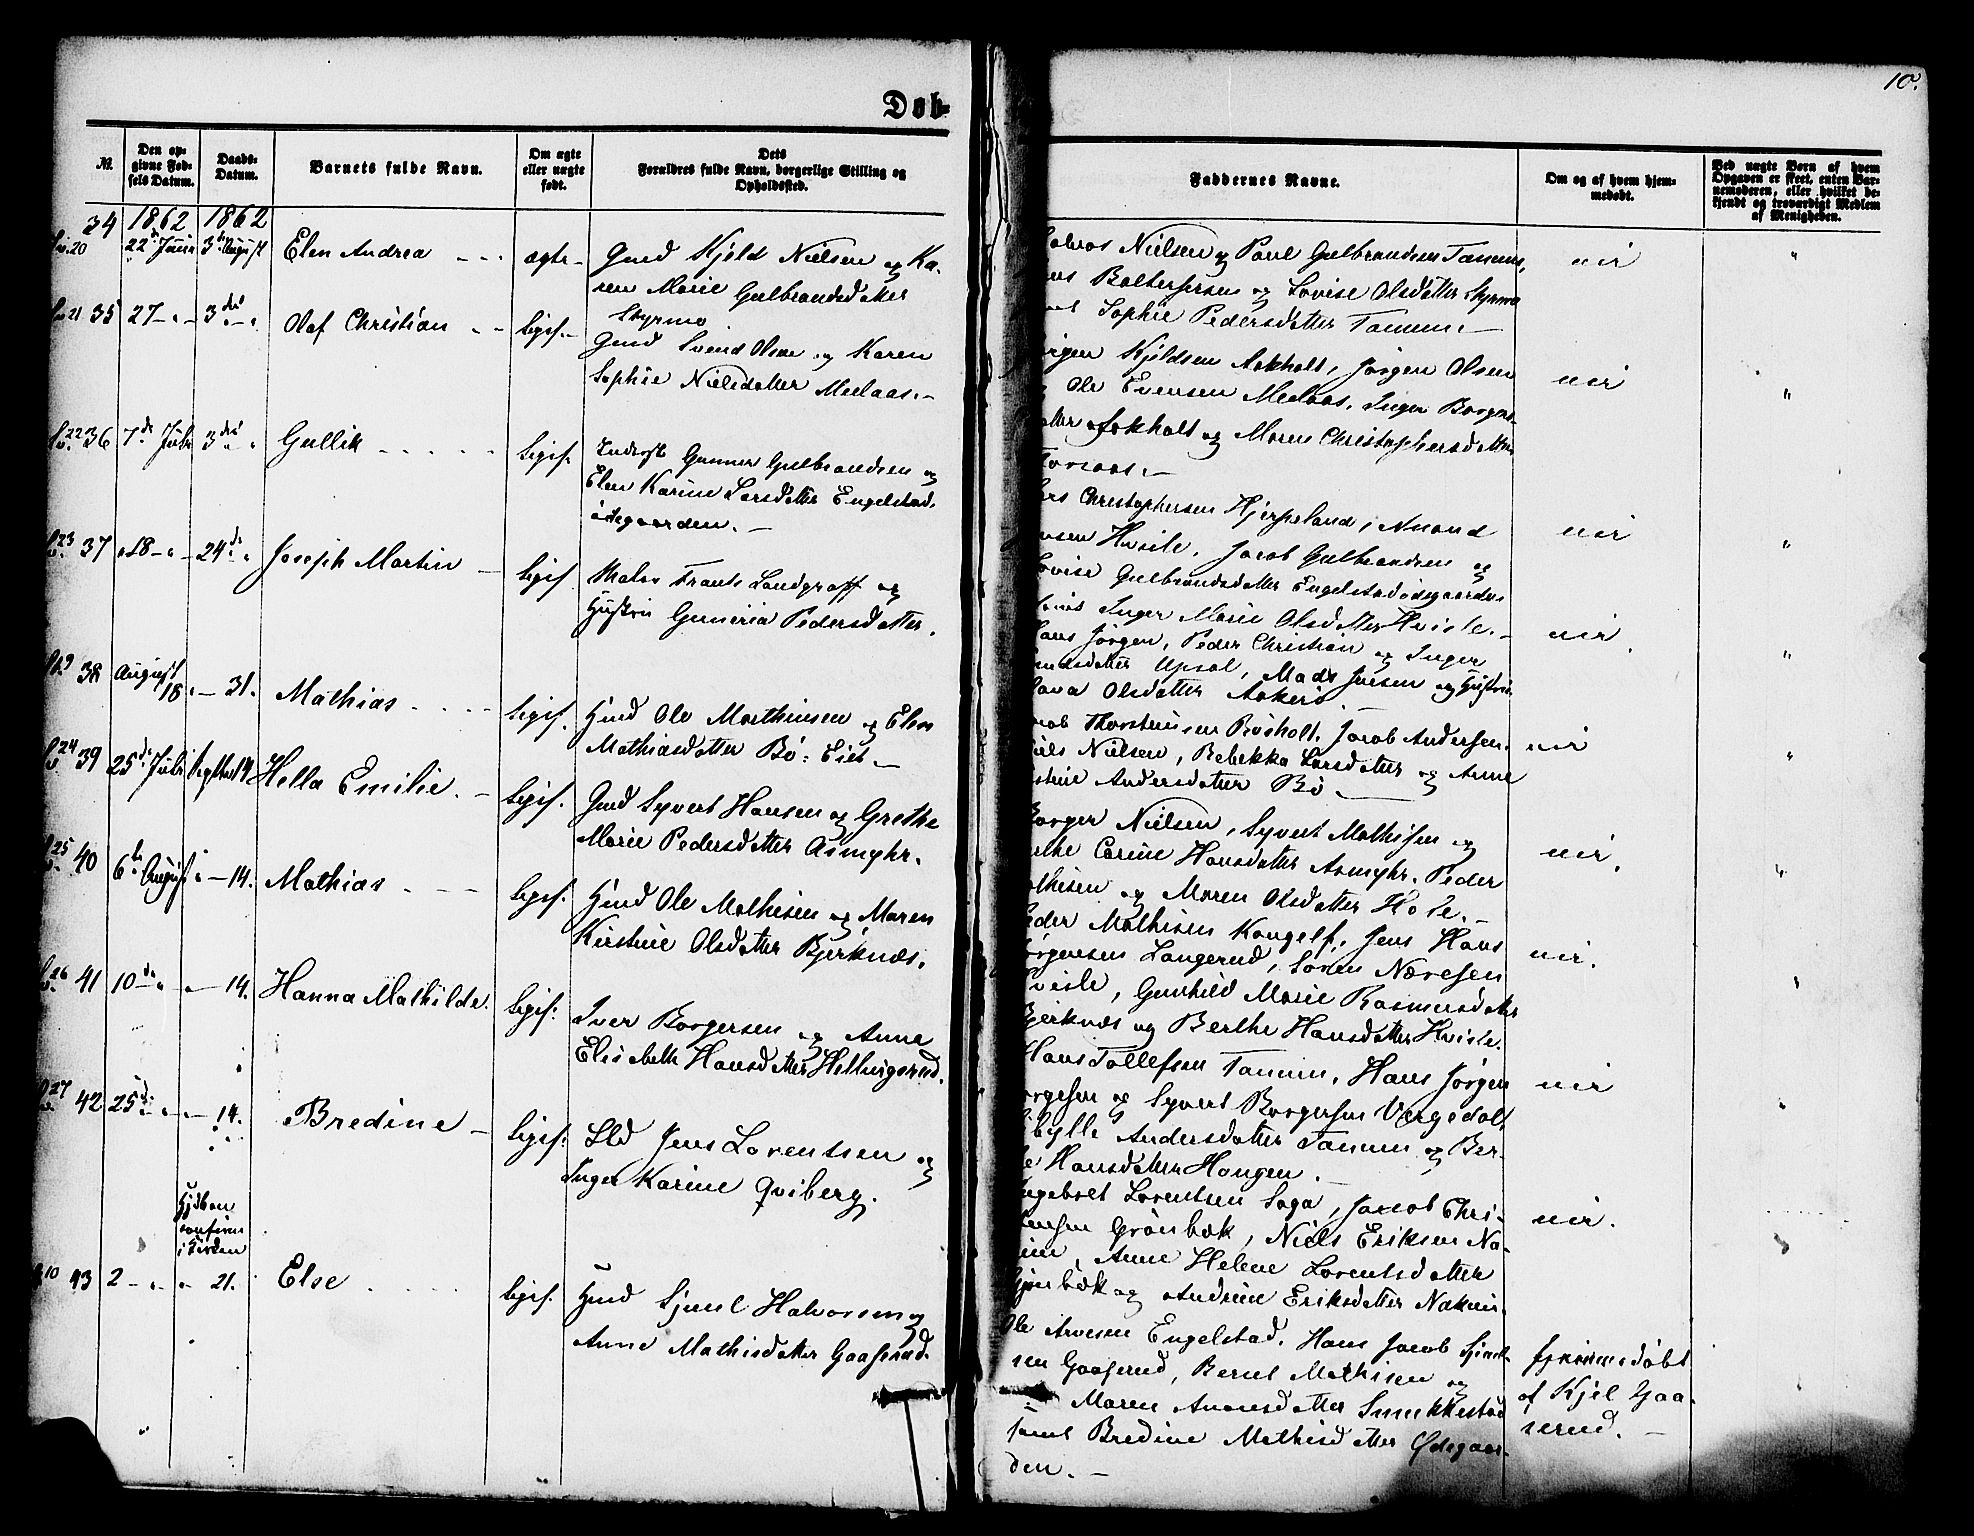 10.
Døb-
№.
Den op-
givne Fød-
sels Datum.
Daabs-
Datum.
Barnets fulde Navn.
Om ægte
eller uægte
født.
Dets
Forældres fulde Navn, borgerlige Stilling og
Opholdssted.
Faddernes Navne.
Om og af hvem hjem-
medøbt.
Ved uægte Børn af hvem
Opgaven er skeet, enten Bar-
nemoderen, eller hvilket be-
kjendt og troværdigt Medlem
af Menigheden.
1862 1862
34 22 Juni 3 August Elen Andrea ægte Gmd Kjeld Nielsen og Ka-
ren Marie Gulbrandsdatter
Styrmo
Nielsen og Povel Gulbrandsen Tamum,
og Lovise Olsdatter Styrmo
Sophie Pedersdatter Tamum.
nei
35 27 3 Olaf Christian liges. Gmd Svend Olsen og Karen
Sophie Nielsdatter Medaas.
Kjeldsen Askholt, Jørgen Olsen
Ole Evensen Medaas, Inger Borgers-
Askholt og Maren Christophersdatter
nei
36 7 Juli 3 Gullik ligis. Inderst Gunner Gulbrandsen og
Elen Karine Larsdatter Engelstad-
ødegaarden.
Christophersen Hjerpeland, Amund
Hvisle, Jacob Gulbrandsen og
Lovise Gulbrandsdatter Engelstadødegaarden
Inger Marie Olsdatter Hvisle.
nei
37 18 24 Joseph Martin ligis. Maler Frants Landgraff og
Hustru Guneria Pedersdatter.
Hans Jørgen, Peder Christian og Inger
Upsal, Mads Jensen og Hustru
Olsdatter Aakerø
nei
38 August 18 31. Mathias ligis. Hmd Ole Mathiasen og Elen
Mathiasdatter Bø: Eiet
Thorstensen Bøsholt, Jacob Andersen,
Niels Nielsen, Rebekka Larsdatter og Anne
Andersdatter Bø
nei
39 25 Juli Septbr 14 Hella Emilie. ligis. Gmd Syvert Hansen og Grethe
Marie Pedersdatter Asmyhr.
Borger Nielsen, Syvert Mathisen og
Carine Hansdatter Asmyhr. Peder
Mathisen og Maren Olsdatter Hole.
nei.
40 6 August 14. Mathias ligis. Hmd Ole Mathisen og Maren
Kirstine Olsdatter Bjerknæs.
Peder Mathisen Kongelf, Jens Hans
Jørgensen Langerud, Søren Narvesen
Hvisle, Gunhild Marie Rasmusdatter
Bjerknæs og Berthe Hansdatter Hvisle.
nei.
41 10 14. Hanna Mathilde. ligis: Iver Borgersen og Anne
Elisabeth Hansdatter Hellingsrud.
Hans Tollefsen Tamum, Hans Jørgen
Borgesen og Syvert Borgersen Vergedal,
Andersdatter Tamum og Ber-
Hansdatter Haugen.
nei
42 25 14. Bredine ligis: Lld Jens Lorentsen og
Inger Karine Qviberg.
Ingebret Lorentsen Saga, Jacob Chri-
Grønbæk, Niels Eriksen Na-
Anne Helene Lorentsdatter
Grønbæk og Andrine Eriksdatter Naknim.
nei.
Hjdben
confirm
i Kirken
43 2 21. Else ligis. Hmd Sjuul Halvorsen og
Anne Mathisdatter Gaaserud.
Ole Arvesen Engelstad. Hans Jacob
Gaaserud, Bernt Mathisen og
Maren Amundsdatter Smukkestad
samt Bredine Mathisdatter Ødegaar-
den.
hjemmedøbt
af Kjel Gaa-
serud.